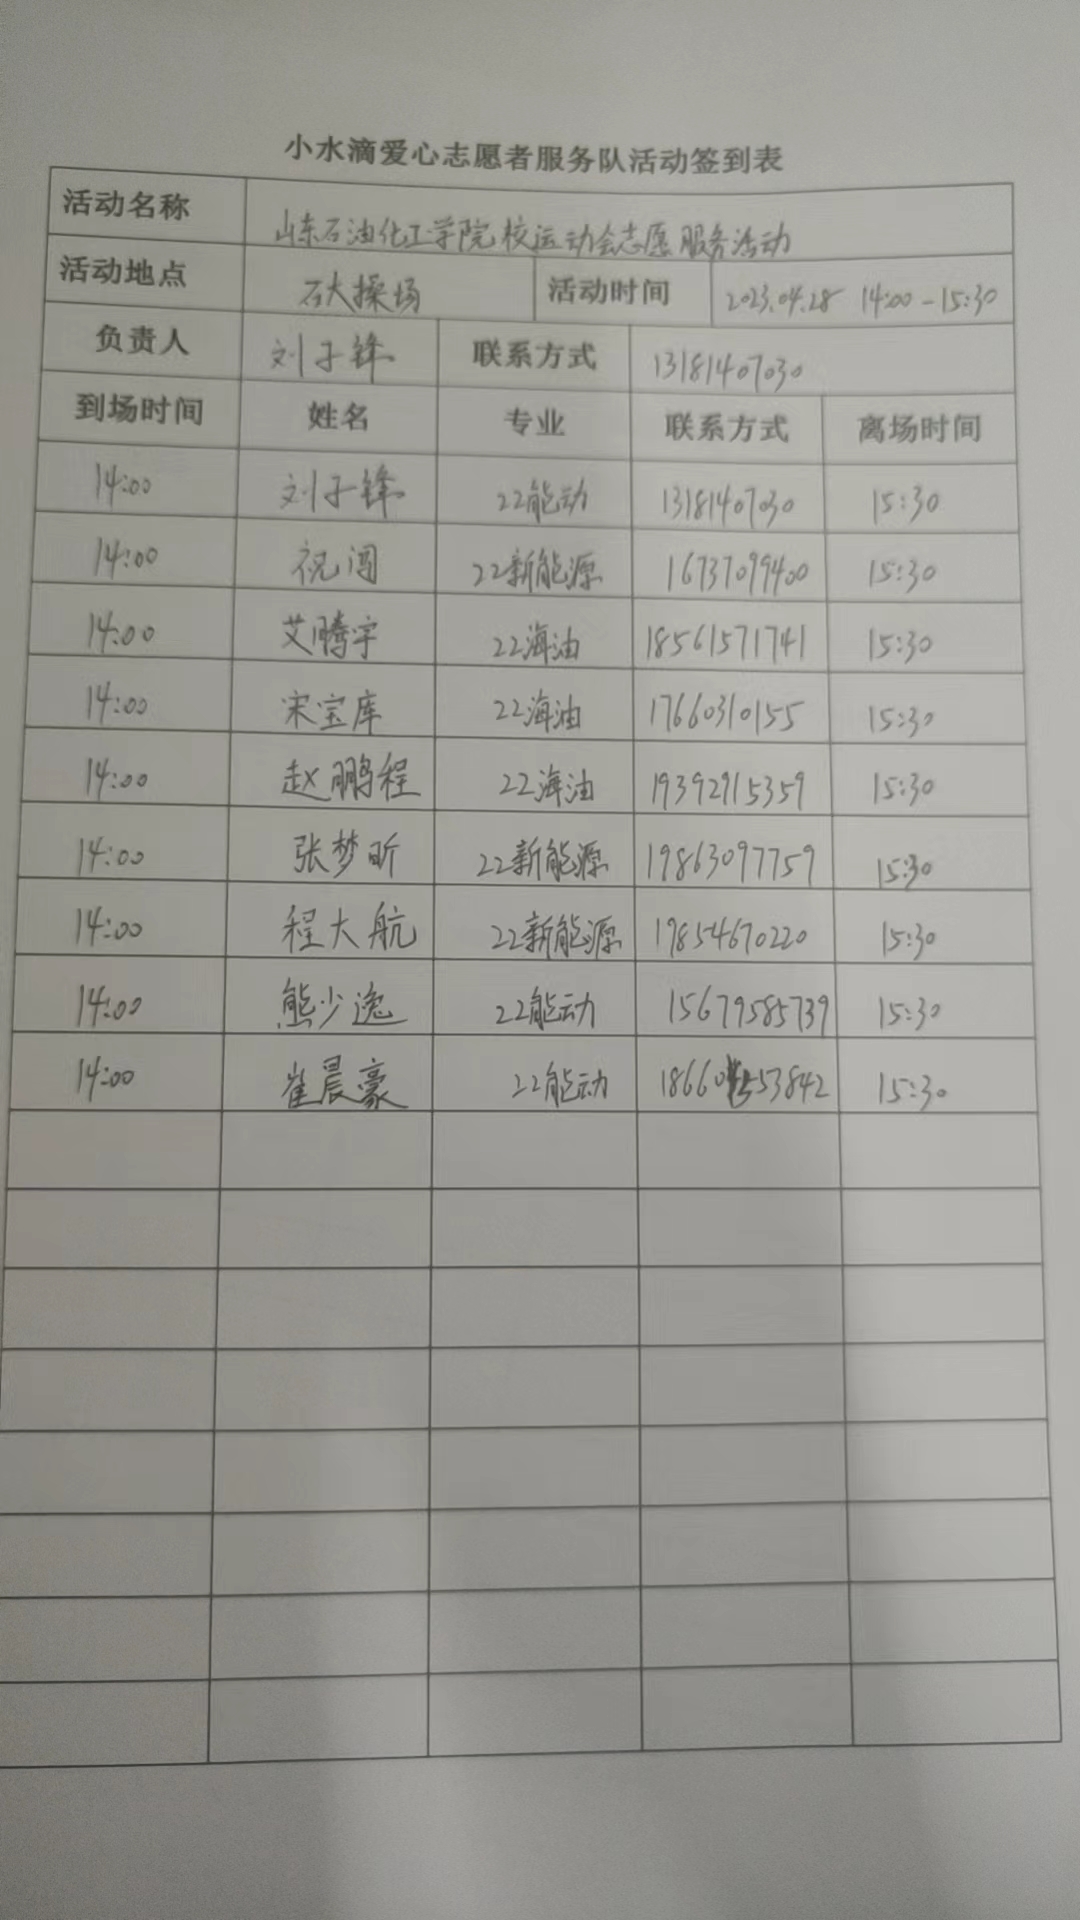 小水滴爱心志愿者服务队活动签到表
活动名称 山东石油化工学院校运动会志愿服务活动
活动地点 石大操场 活动时间 2023.04.28 14:00-15:30
负责人 刘子锋 联系方式 13181407030
到场时间 姓名 专业 联系方式 离场时间
14:00 刘子锋 22能动 13181407030 15:30
14:00 祝闯 22新能源 16737099400 15:30
14:00 艾腾宇 22海油 18561571741 15:30
14:00 宋宝库 22海油 17660310155 15:30
14:00 赵鹏程 22海油 19392915359 15:30
14:00 张梦昕 22新能源 19863097759 15:30
14:00 程大航 22新能源 19854670220 15:30
14:00 熊少逸 22能动 15679585739 15:30
14:00 崔晨豪 22能动 15:30